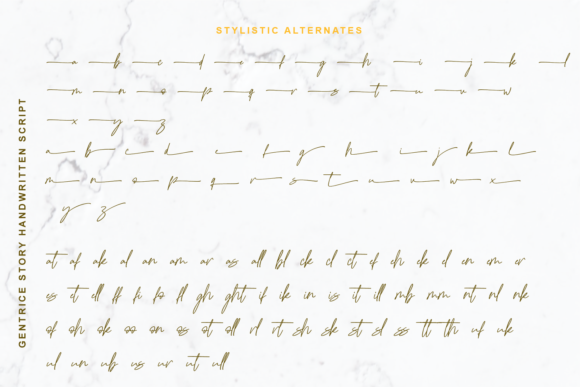 STYLISTIC ALTERNATES
a b c d e f g h i j k l
m n o p q r s t u v w
x y z
a b c d e f g h i j k l
m n o p q r s t u v w x
y z
at af ak al an am ar as all bl ck cl ct cf ch ck el en em er
es et ell ff fi fo fl gh ght if ik in is it ill mb mm nt nl nk
of oh ok oo on os ot oll rl rt sh sk st sl ss tt th uf uk
ul un ub us ur ut ull
GENTRICE STORY HANDWRITTEN SCRIPT